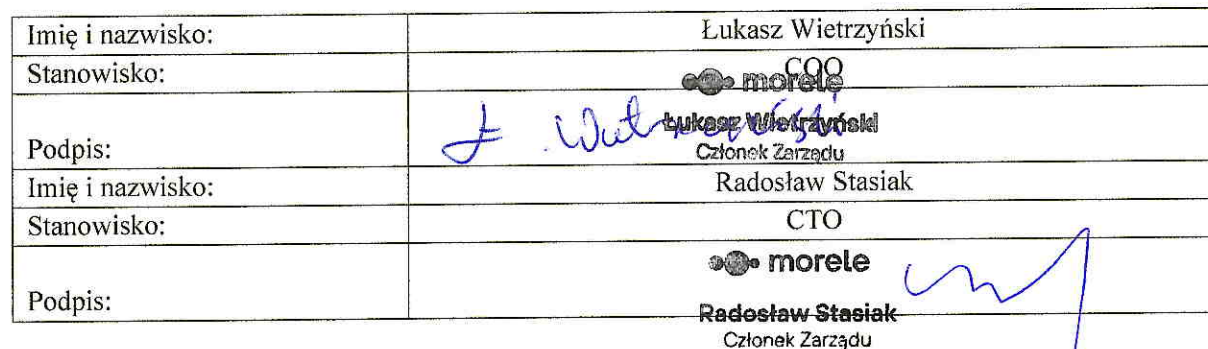 Imię i nazwisko: Łukasz Wietrzyński
Stanowisko: COO
morele
Łukasz Wietrzyński
Podpis: Członek Zarządu
Imię i nazwisko: Radosław Stasiak
Stanowisko: CTO
morele
Podpis:
Radosław Stasiak
Członek Zarządu